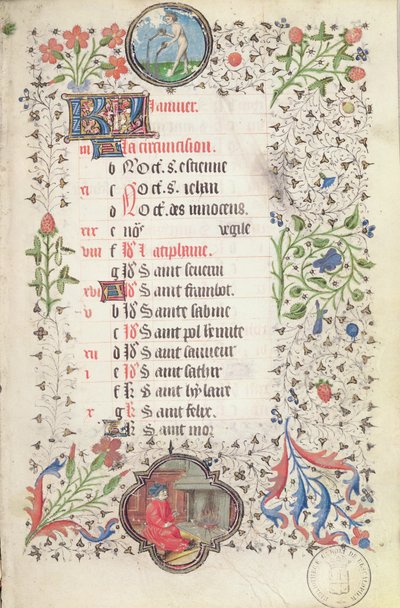 KL Januier.
iii A La circuncision.
b Oct. s. estienne
xi c Oct. s. iehan
d Oct. des innocens.
xix e no͂s vegile
viii f Id' La tiplaine.
g Id' Saint seuerin
xvi A Id' Saint frambot.
v b Id' Sainte sabine
c Id' Saint pol lermite
xiii d Id' Saint sauueur
i e Id' Saint satir
f kl Saint hylaire
x g kl Saint felix.
A kl Saint mor